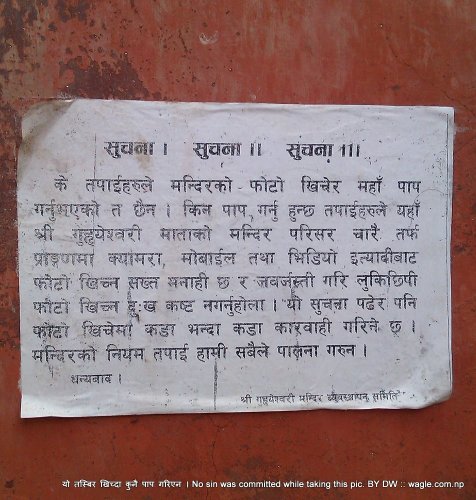 सुचना । सुचना ॥ सुचना ॥।
के तपाईहरुले मन्दिरको फोटो खिचेर महाँ पाप
गर्नुभएको त छैन । किन पाप गर्नु हुन्छ तपाईहरुले यहाँ
श्री गुह्येश्वरी माताको मन्दिर परिसर चारै तर्फ
प्राङ्गणमा क्यामरा, मोबाईल तथा भिडियो इत्यादीबाट
फोटो खिच्न सख्त मनाही छ र जवर्जस्ती गरि लुकिछिपी
फोटो खिच्न दुःख कष्ट नगर्नुहोला । यो सुचना पढेर पनि
फोटो खिचेमा कडा भन्दा कडा कारवाही गरिने छ ।
मन्दिरको नियम तपाई हामी सबैले पालना गरुन ।
धन्यवाद ।
श्री गुह्येश्वरी मन्दिर व्यवस्थापन समिति
यो तस्बिर खिच्दा कुनै पाप गरिएन । No sin was committed while taking this pic. BY DW :: wagle.com.np